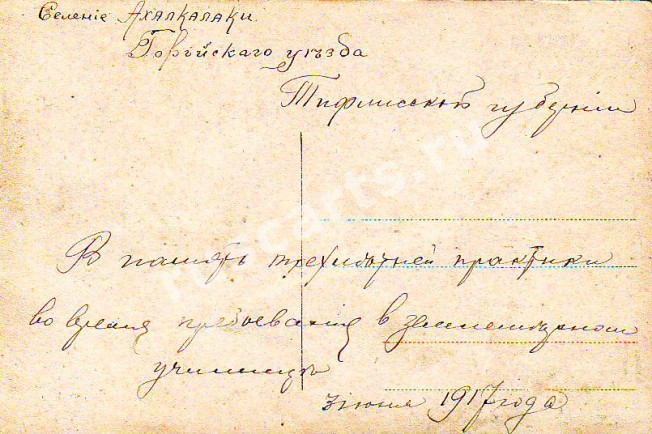 Селеніе Ахалкалаки
Горійскаго уѣзда
Тифлисской губерніи
В память трехлѣтней практики
во время пребывания в землемѣрном
училищѣ
3 июня 1917 года
ruscarts.ru